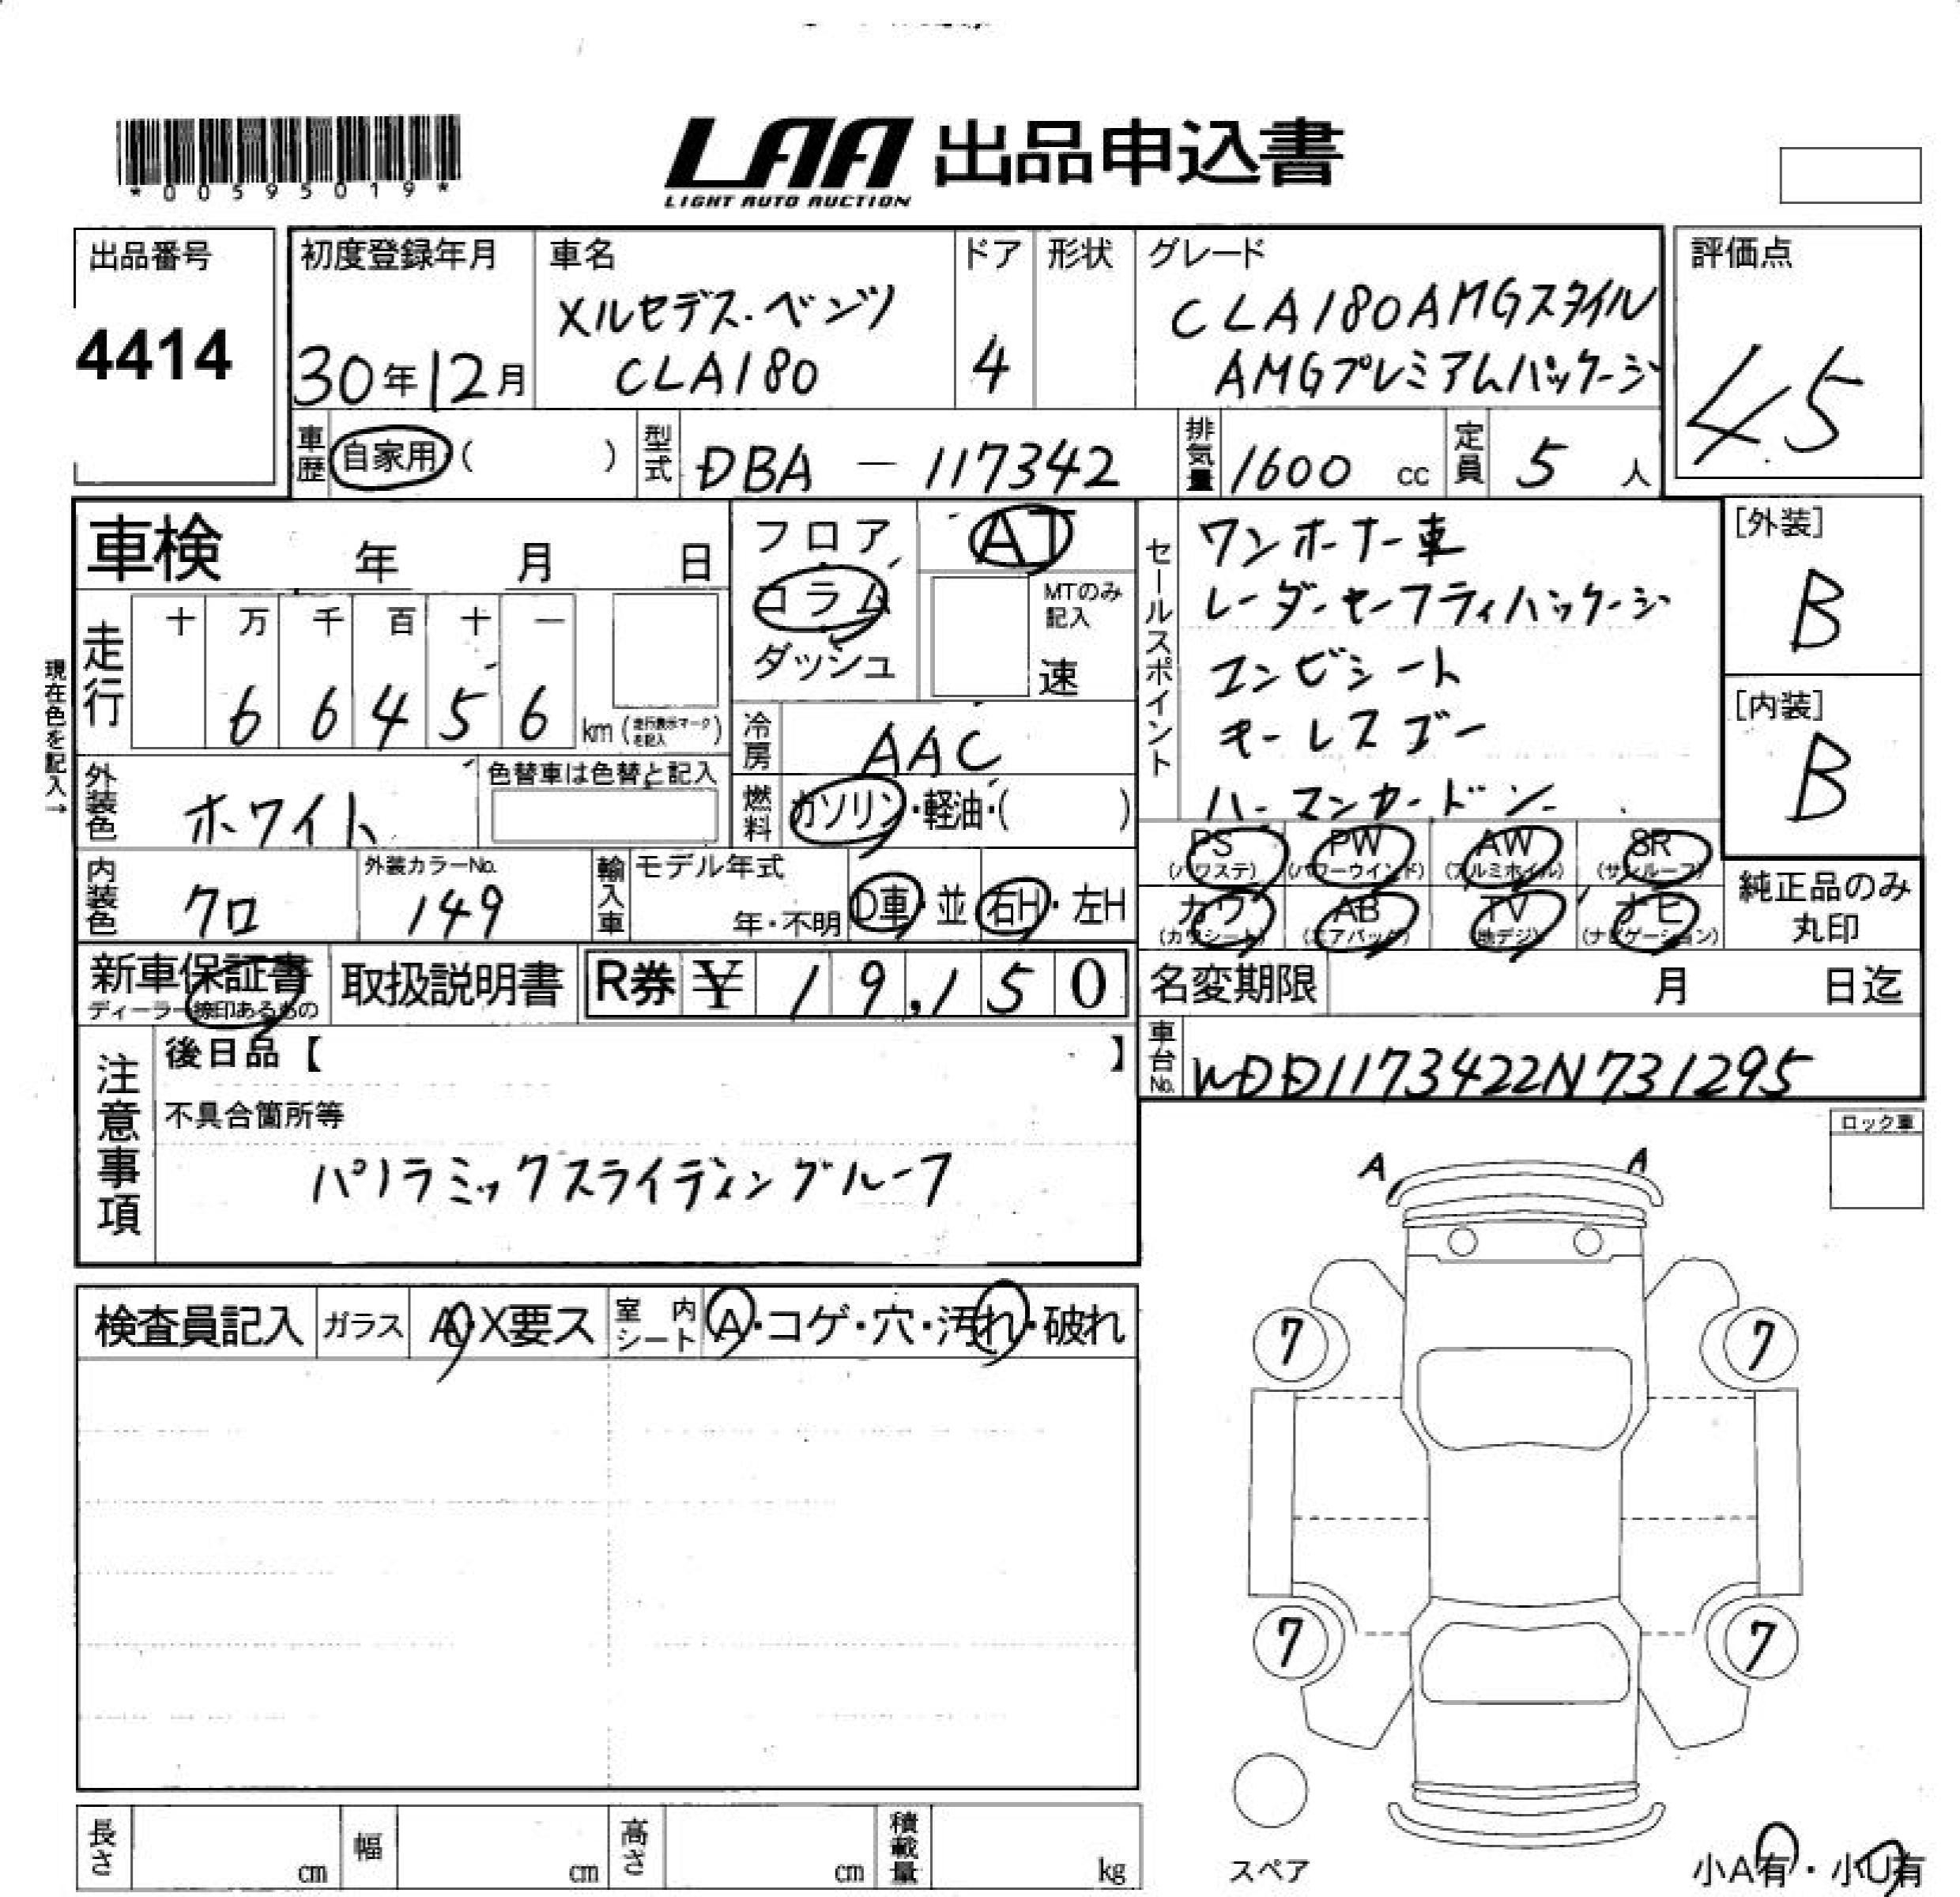 *00595019*
LAA 出品申込書
LIGHT AUTO AUCTION
出品番号
4414
初度登録年月
30年12月
車名
メルセデス・ベンツ
CLA180
ドア
4
形状
グレード
CLA180AMGスタイル
AMGプレミアムパッケージ
評価点
4.5
車歴 自家用 ( )
型式 DBA - 117342
排気量 1600 cc
定員 5 人
車検 年 月 日
走行 十 万 千 百 十 一
6 6 4 5 6 km (走行表示マークを記入)
現在色を記入→
フロア
コラム
ダッシュ
AT
MTのみ
記入
速
冷房 AAC
燃料 ガソリン・軽油・( )
セールスポイント
ワンオーナー車
レーダーセーフティパッケージ
コンビシート
キーレスゴー
ハーマンカードン
[外装]
B
[内装]
B
外装色 ホワイト
色替車は色替と記入
内装色 クロ
外装カラーNo.
149
輸入車
モデル年式
年・不明
D車・並
右H・左H
PS PW AW SR
(パワステ) (パワーウインド) (アルミホイル) (サンルーフ)
カワ AB TV ナビ
(カワシート) (エアバッグ) (地デジ) (ナビゲーション)
純正品のみ
丸印
新車保証書
ディーラー捺印あるもの
取扱説明書
R券 ¥ 19,150
名変期限 月 日迄
車台No. WDD1173422N731295
注意事項
後日品【 】
不具合箇所等
パノラミックスライディングルーフ
ロック車
検査員記入
ガラス A・X要ス
室内シート A・コゲ・穴・汚れ・破れ
A A
7 7
7 7
スペア
小A有・小U有
長さ cm
幅 cm
高さ cm
積載量 kg